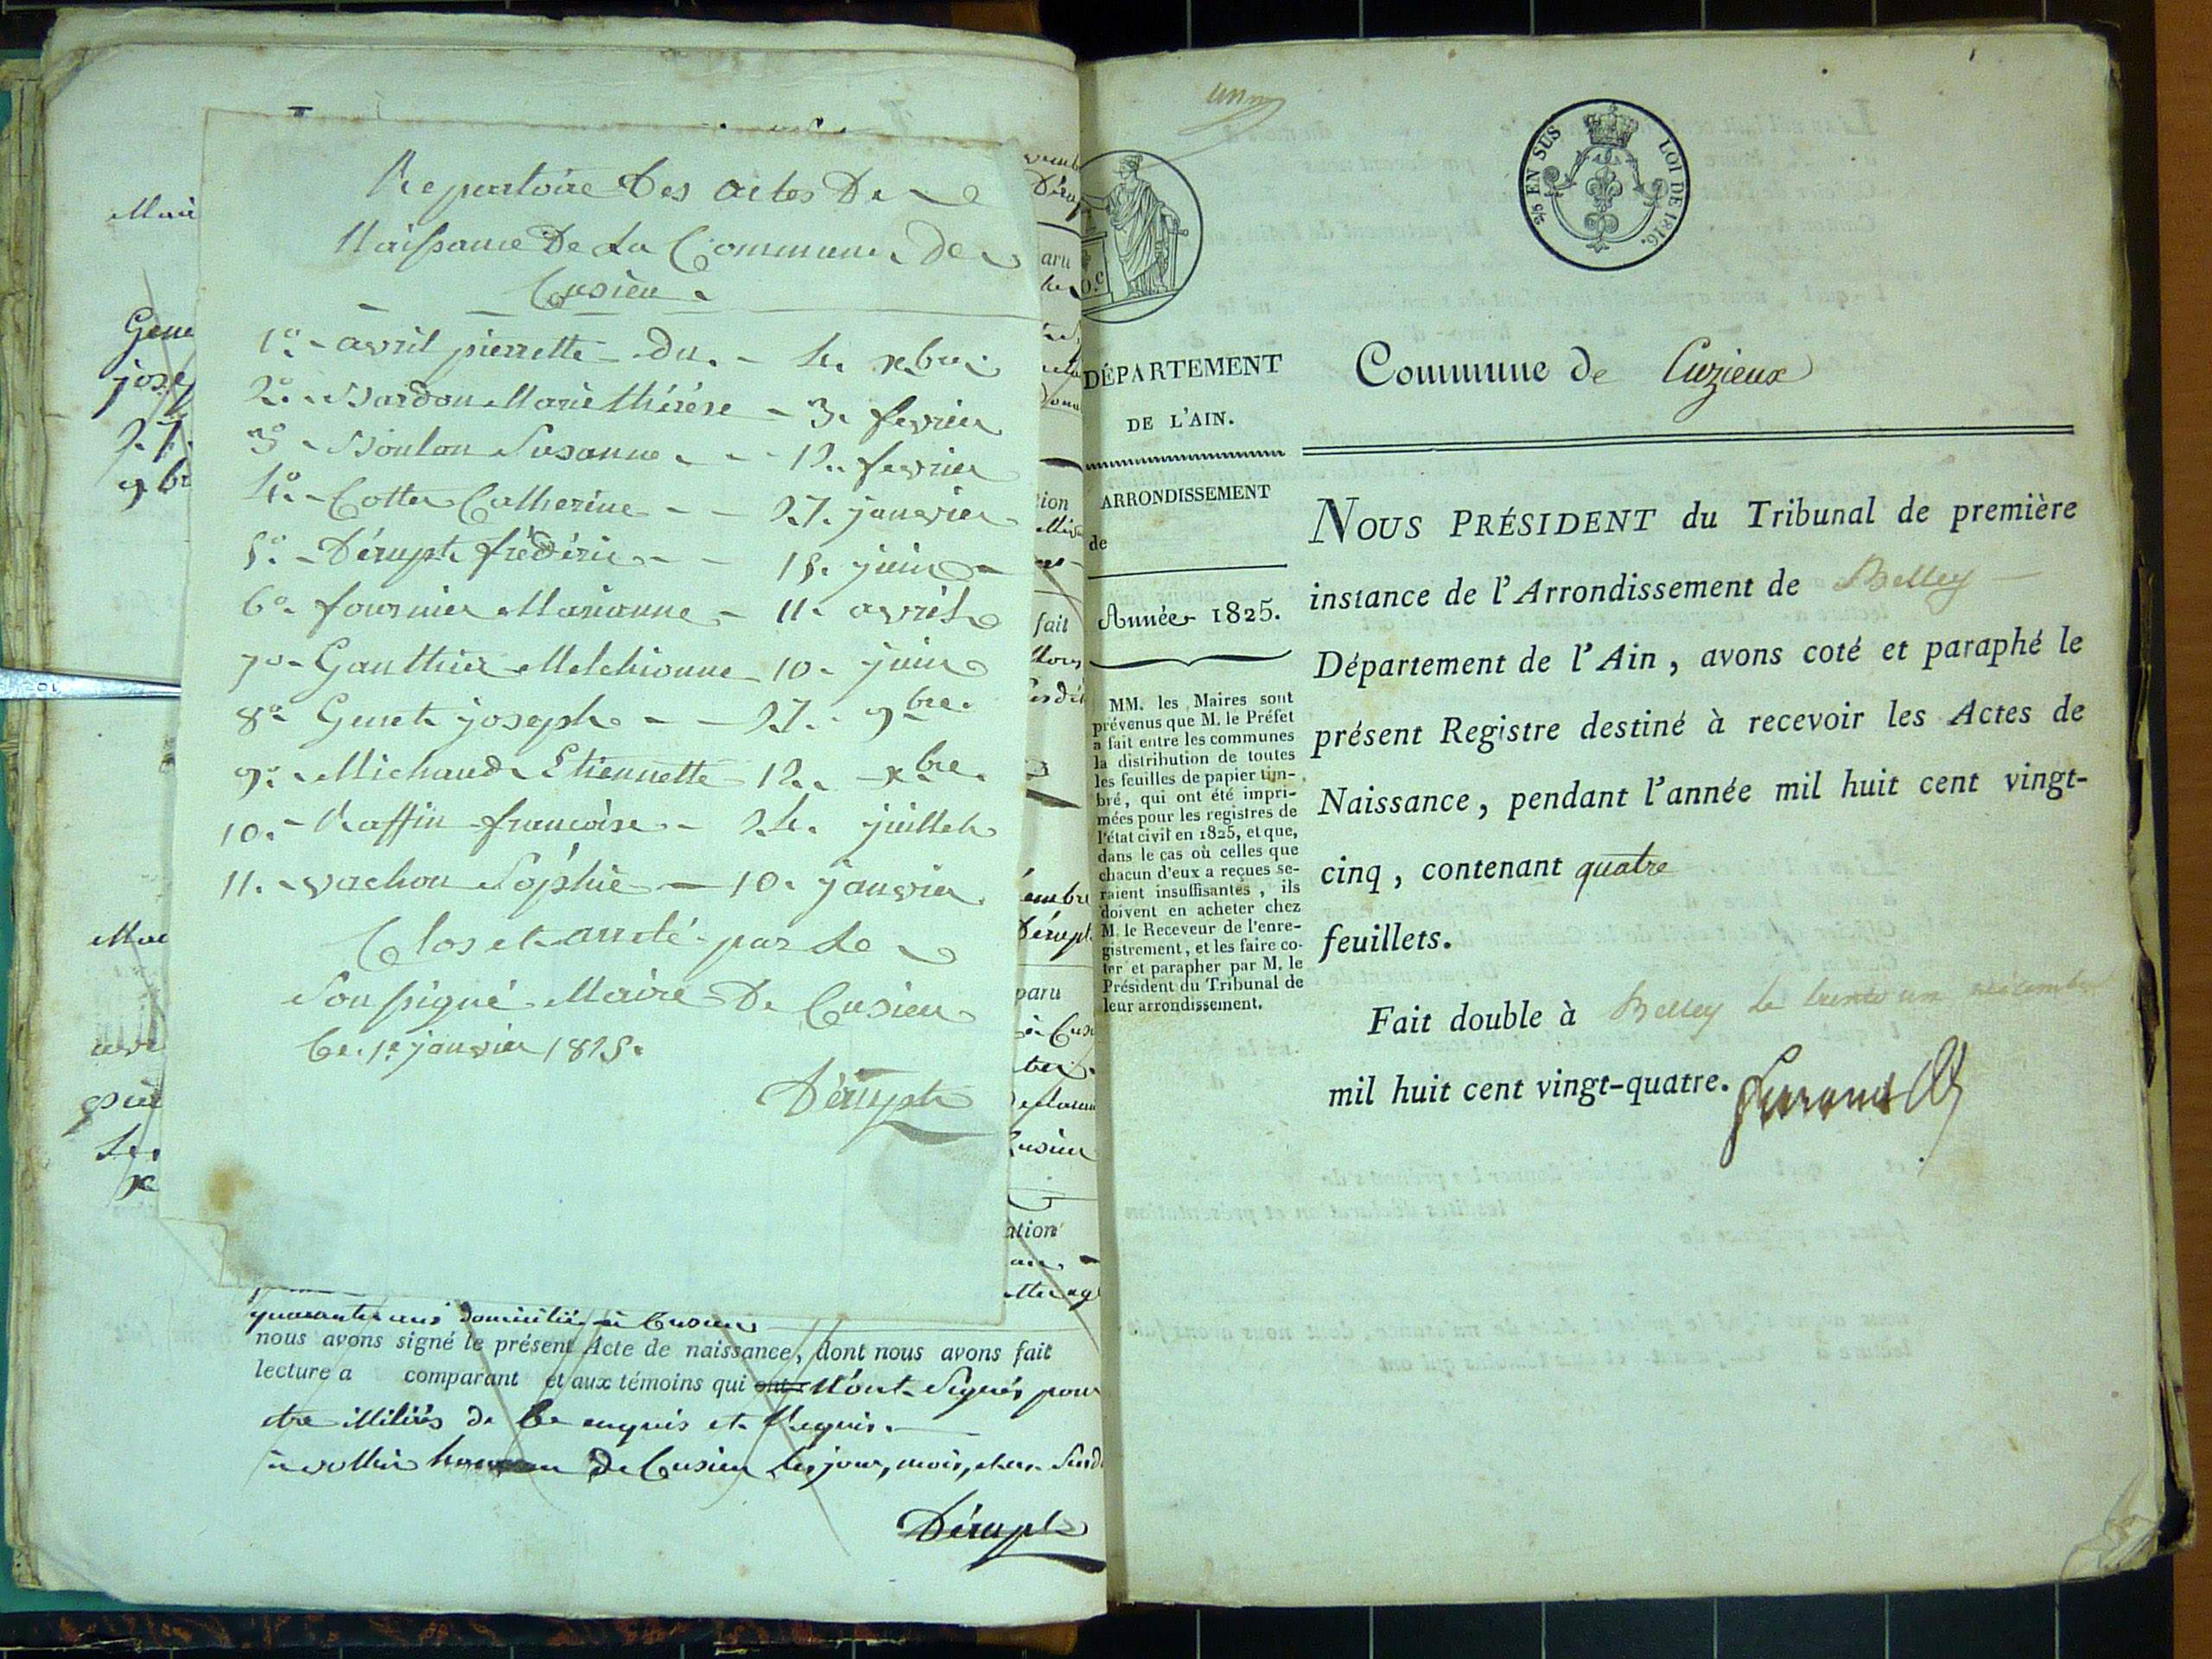 Repertoire Des actes De
Naissance De La Commune de
Cusieu
1º. avril pierrette - du. - 4. xbre
2º. Bardon Marie thérèse - 3. fevrier
3º Boulon Susanne - - 12. fevrier
4º. Cotter Catherine - - 27. janvier
5º - Dérupt frédéric - - 15. juin
6º. fournier Marianne - 11. avril
7º - Gauthier Melchionne - 10. juin
8º Genet joseph - - 27. 9bre.
9º. Michaud Etiennette - 12. xbre.
10. - Raffin françoise - 24. juillet
11. - vachon Sophie - 10. janvier
Clos et arrêté par Le
Soussigné Maire De Cusieu
Ce 1er janvier 1825.
Dérupt
Mari
Gene
josep
27.
9br
quarante ans domicilié à Cusieu
nous avons signé le présent Acte de naissance, dont nous avons fait
lecture a comparant et aux témoins qui ont N'ont Signés pour
etre illitirés de Ce enquis et Requis.
de Cusieu Les jour, mois, et an
Dérupt
2/5 EN SUS LOI DE 1816.
DÉPARTEMENT
DE L'AIN.
ARRONDISSEMENT
de
Année 1825.
MM. les Maires sont
prévenus que M. le Préfet
a fait entre les communes
la distribution de toutes
les feuilles de papier tim-
bré, qui ont été impri-
mées pour les registres de
l'état civil en 1825, et que,
dans le cas où celles que
chacun d'eux a reçues se-
raient insuffisantes, ils
doivent en acheter chez
M. le Receveur de l'enre-
gistrement, et les faire co-
ter et parapher par M. le
Président du Tribunal de
leur arrondissement.
Commune de Cuzieux
NOUS PRÉSIDENT du Tribunal de première
instance de l'Arrondissement de Belley
Département de l'Ain, avons coté et paraphé le
présent Registre destiné à recevoir les Actes de
Naissance, pendant l'année mil huit cent vingt-
cinq, contenant quatre
feuillets.
Fait double à Belley le trente un décembre
mil huit cent vingt-quatre.